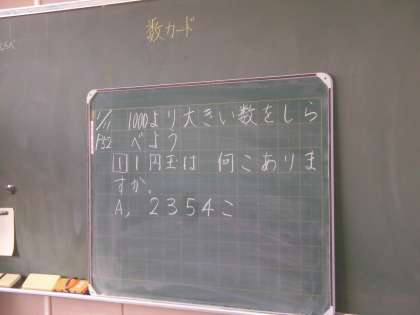 数カード
らべ
1/11 1000より大きい数をしら
P52 べよう
1 1円玉は 何こありま
すか。
A, 2354こ